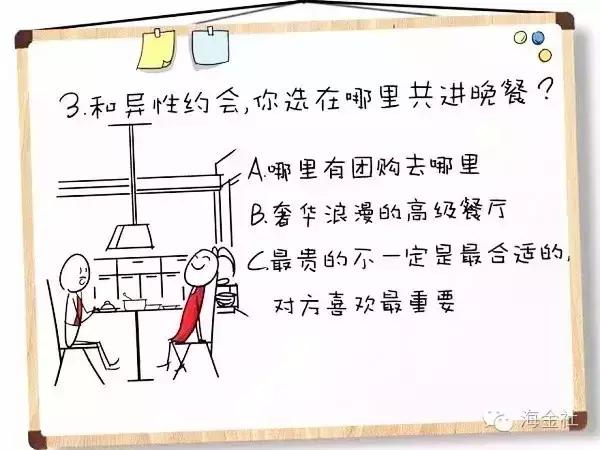 3.和异性约会,你选在哪里共进晚餐?
A.哪里有团购去哪里
B.奢华浪漫的高级餐厅
C.最贵的不一定是最合适的,
对方喜欢最重要
海金社